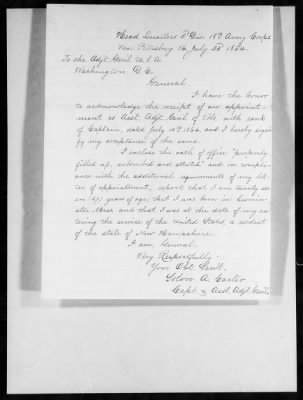 Head Quarters 3d Div. 18th Army Corps
Near Petersburg Va July 23d 1864.
To the Adjt. Genl. U.S.A.
Washington D.C.
General
I have the honor
to acknowledge the receipt of an appoint-
ment as Asst. Adjt. Genl. of Vols with rank
of Captain, dated July 10th 1864, and I hereby signi-
fy my acceptance of the same.
I inclose the oath of office "properly
filled up, subscribed and attested" and in compli-
ance with the additional requirements of my let-
ter of appointment, report that I am twenty sev-
en (27) years of age, that I was born in Leomin-
ster Mass and that I was at the date of my en-
tering the service of the United States, a resident
of the state of New Hampshire.
I am, General,
Very Respectfully
Your Obt. Servt.
Solon A. Carter
Capt. & Asst. Adjt. Genl.